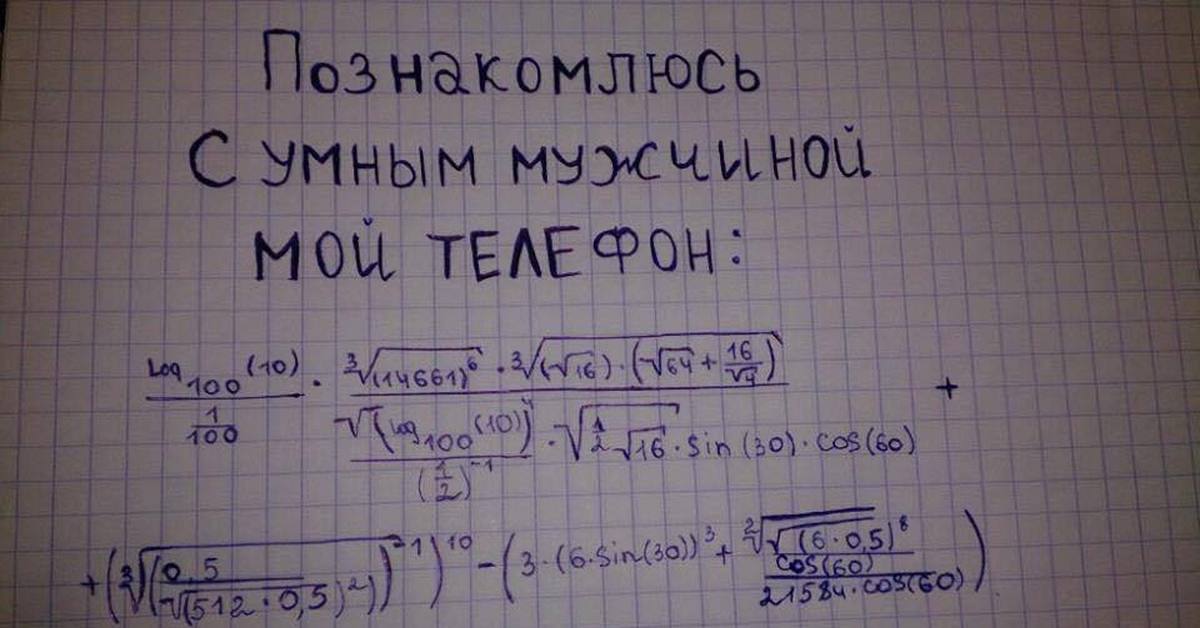 Познакомлюсь
с умным мужчиной
мой телефон:
log₁₀₀(10) / (1/100) · (∛(14661)⁶ · ∛((√16)·(√64 + 16/√4))) / ((√(log₁₀₀(10))⁴ / (1/2)⁻¹) · √(1/2 √16) · sin(30) · cos(60)) +
+ (∛((0.5 / √(512·0,5)²))⁻¹)¹⁰ − (3·(6·sin(30))³ + ²√(√(6·0,5)⁸ / cos(60)) / (21584·cos(60)))